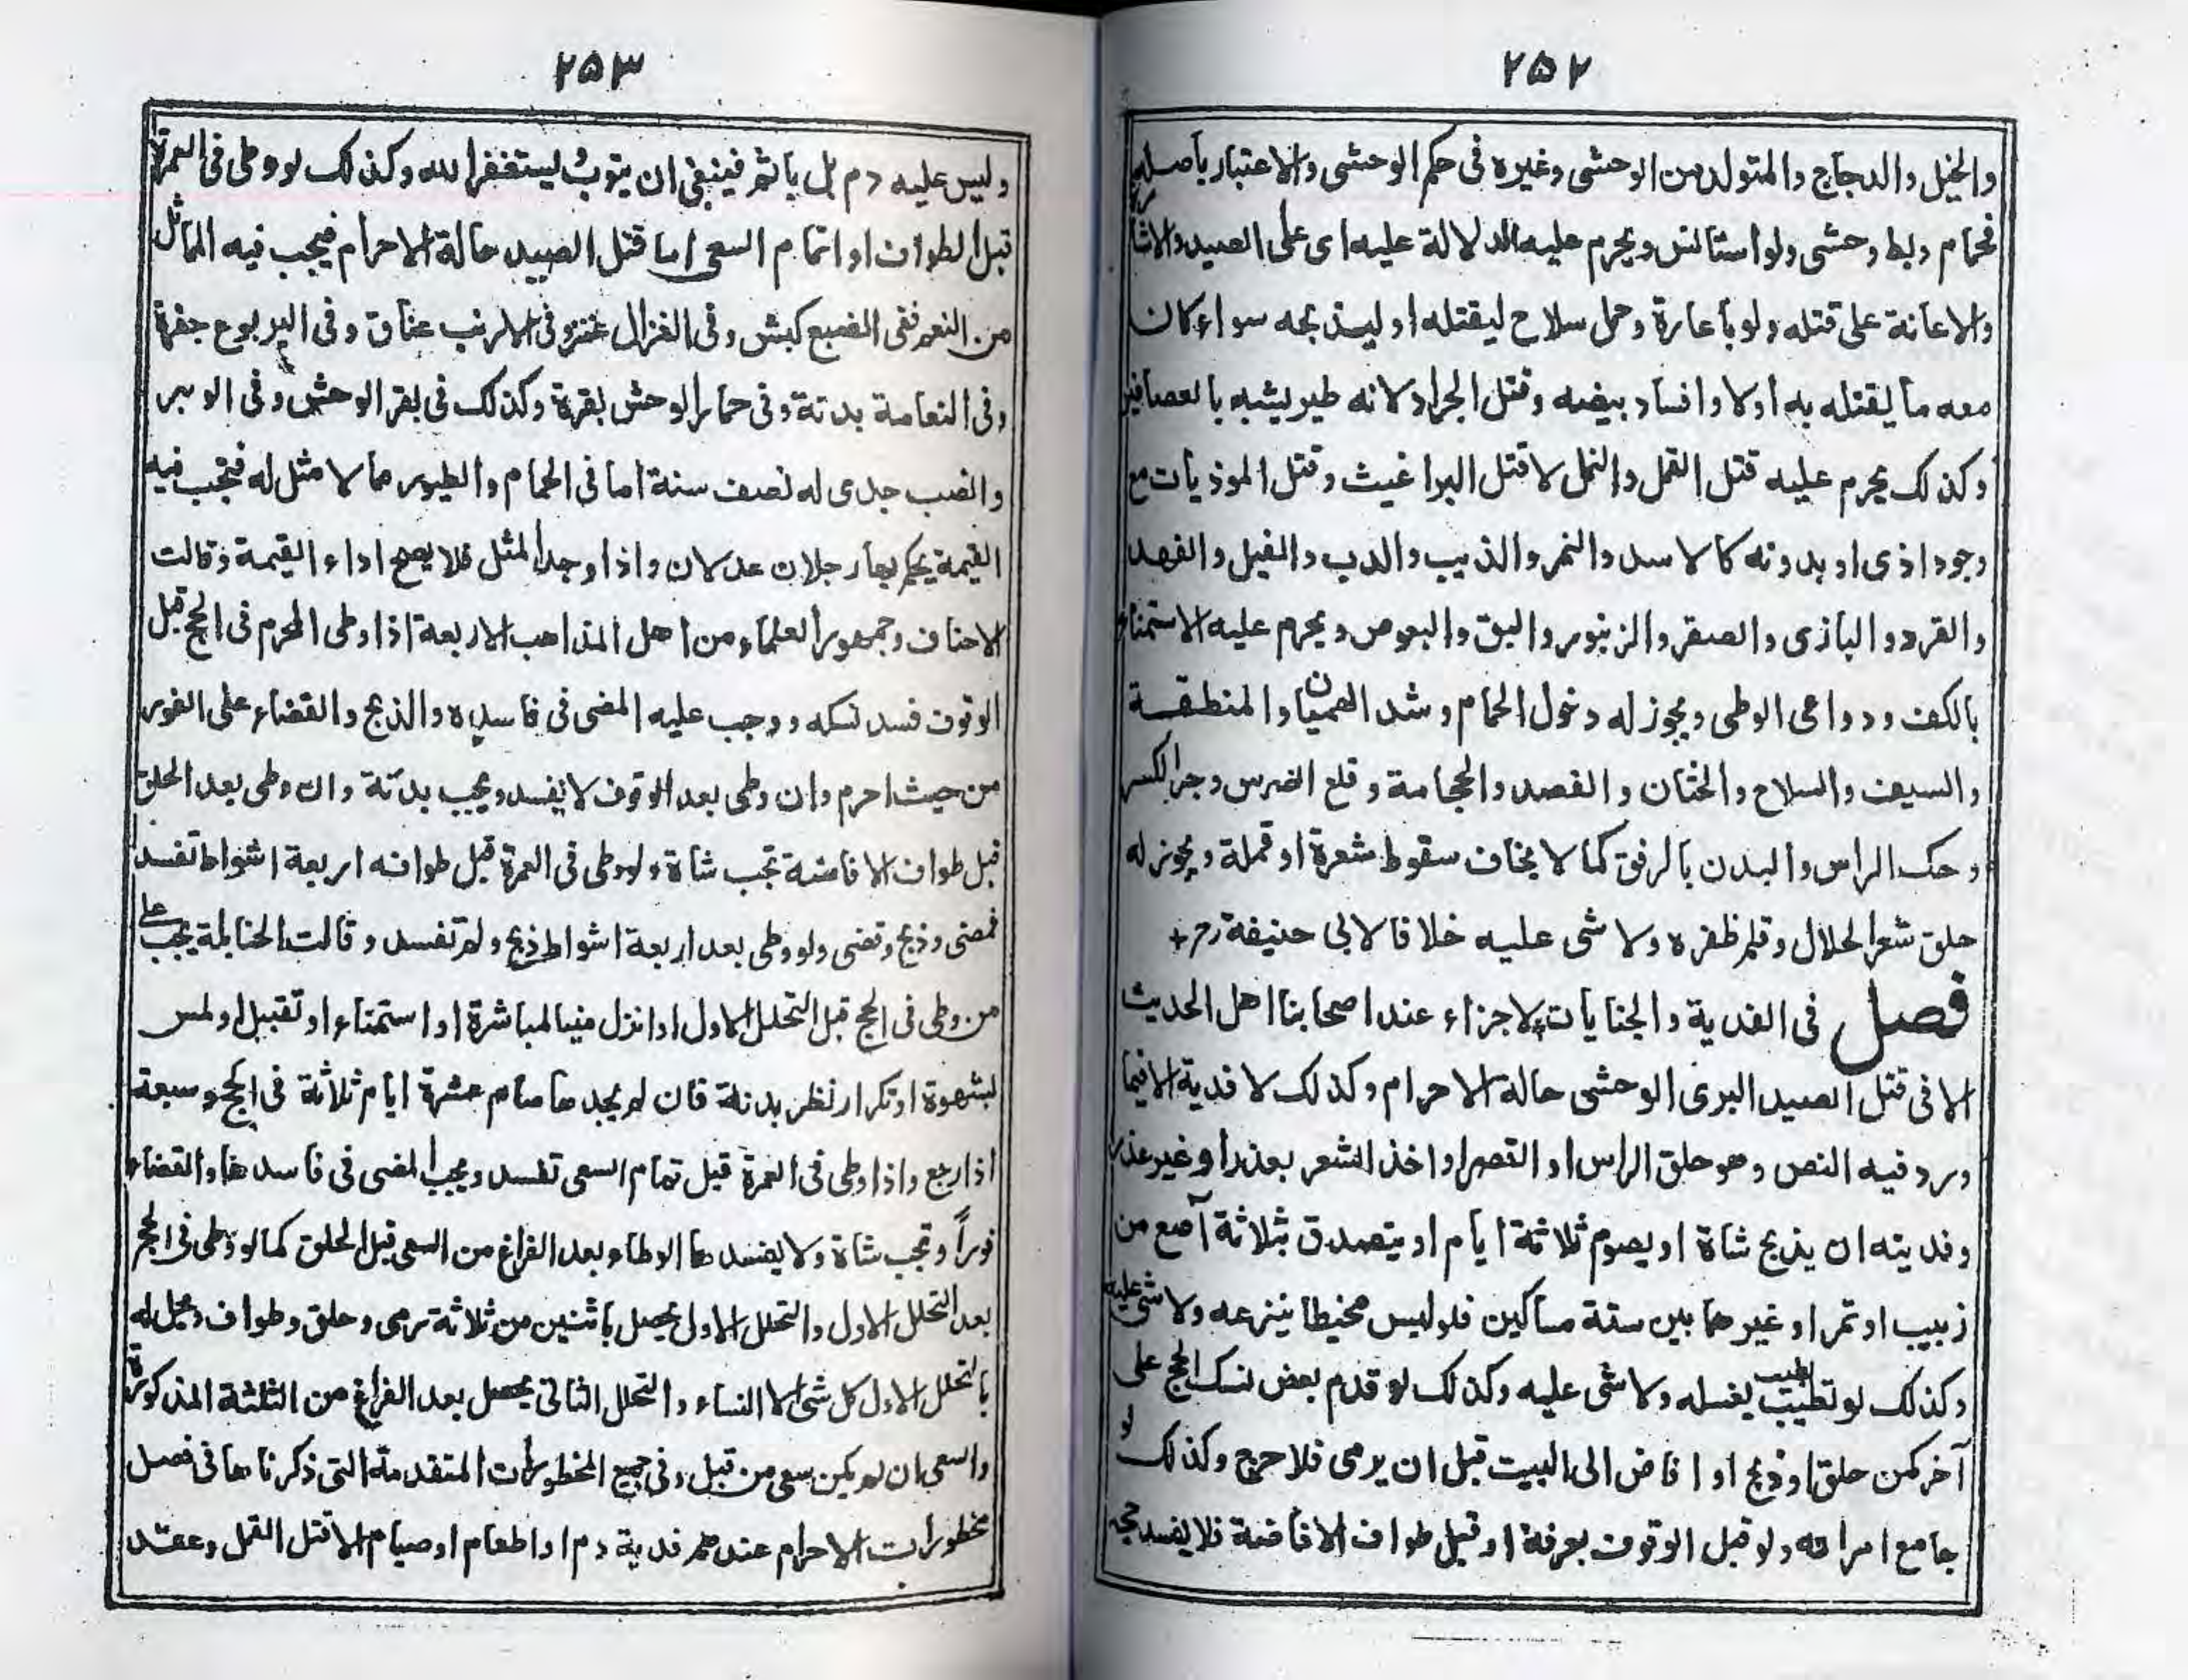 ٢٥٢
والخيل والدجاج والمتولد من الوحشی وغيره فی حکم الوحشی والاعتبار بأصله
فحمام وبط وحشی ولو استانس ويحرم عليه الدلالة عليه ای علی الصيد والاشارة
والاعانة علی قتله ولو بأعارة وحمل سلاح ليقتله او ليذبحه سواء كان
معه ما ليقتله به اولا وافساد بيضه وقتل الجراد لانه طير يشبه بالعصافير
وكذلك يحرم عليه قتل القمل والنمل لا قتل البراغيث وقتل الموذيات مع
وجود اذی او بدونه كالاسد والنمر والذيب والدب والفيل والفهد
والقرد والبازی والصقر والزنبور والبق والبعوض ويحرم عليه الاستمناع
بالكف ودواعی الوطی ويجوز له دخول الحمام وشد الهميان والمنطقة
والسيف والسلاح والختان والفصد والحجامة وقلع الضرس وجبر الكسر
وحك الراس والبدن بالرفق كما لا يخاف سقوط شعرة او قملة ويجوز له
حلق شعر الحلال وقلم ظفره ولا شی عليه خلافا لابی حنيفة رح +
فصل فی الفدية والجنايات لاجزاء عند اصحابنا اهل الحديث
الا فی قتل الصيد البری الوحشی حالة الاحرام وكذلك لا فدية الا فيما
ورد فيه النص وهو حلق الراس او القصر او اخذ الشعر بعذر او غير عذر
وفديته ان يذبح شاة او يصوم ثلاثة ايام او يتصدق بثلاثة آصع من
زبيب او تمر او غيرهما بين ستة مساكين فلو لبس مخيطا ينزعه ولا شی عليه
وكذلك لو تطيب الطيب يغسله ولا شی عليه وكذلك لو قدم بعض نسك الحج علی
آخر كمن حلق او ذبح او افاض الی البيت قبل ان يرمی فلا حرج وكذلك لو
جامع امراته ولو قبل الوقوف بعرفة او قبل طواف الافاضة فلا يفسد حجه
٢٥٣
وليس عليه دم بل يأثم فينبغی ان يتوب ليستغفر الله وكذلك لو وطی فی العمرة
قبل الطواف او اتمام السعی اما قتل الصيد حالة الاحرام فيجب فيه المماثل
من النعم ففی الضبع كبش وفی الغزال عنز وفی الارنب عناق وفی اليربوع جفرة
وفی النعامة بدنة وفی حمار الوحش بقرة وكذلك فی بقر الوحش وفی الوبر
والضب جدی له نصف سنة اما فی الحمام والطيور مما لا مثل له فتجب فيه
القيمة يحكم بها رجلان عدلان واذا وجد المثل فلا يصح اداء القيمة وقالت
الاحناف وجمهور العلماء من اهل المذاهب الاربعة اذا وطی المحرم فی الحج قبل
الوقوف فسد نسكه ووجب عليه المضی فی فاسده والذبح والقضاء علی الفور
من حيث احرم وان وطی بعد الوقوف لا يفسد ويجب بدنة وان وطی بعد الحلق
قبل طواف الافاضة تجب شاة ولو وطی فی العمرة قبل طوافه اربعة اشواط تفسد
فمضی وذبح وقضی ولو وطی بعد اربعة اشواط ذبح ولم تفسد وقالت الحنابلة يجب علی
من وطی فی الحج قبل التحلل الاول او انزل منيا لمباشرة او استمناء او تقبيل او لمس
لشهوة او تكرار نظر بدنة فان لم يجدها صام عشرة ايام ثلاثة فی الحج وسبعة
اذا رجع واذا وطی فی العمرة قبل تمام السعی تفسد ويجب المضی فی فاسدها والقضاء
فوراً وتجب شاة ولا يفسدها الوطاء بعد الفراغ من السعی قبل الحلق كما لو وطی فی الحج
بعد التحلل الاول والتحلل الاول يحصل باثنين من ثلاثة رمی وحلق وطواف ويحل له
بالتحلل الاول كل شی الا النساء والتحلل الثانی يحصل بعد الفراغ من الثلثة المذكورة
والسعی ان لم يكن سعی من قبل وفی جميع المحظورات المتقدمة التی ذكرناها فی فصل
محظورات الاحرام عندهم فدية دم او اطعام او صيام الا قتل القمل وعقد